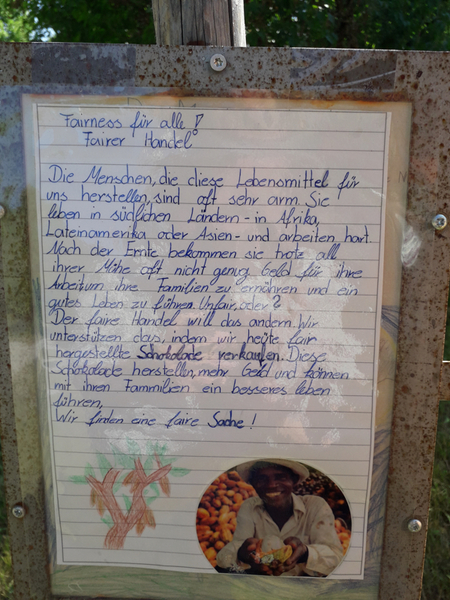 Fairness für alle!
Fairer Handel
Die Menschen, die diese Lebensmittel für
uns herstellen, sind oft sehr arm. Sie
leben in südlichen Ländern - in Afrika,
Lateinamerika oder Asien - und arbeiten hart.
Nach der Ernte bekommen sie trotz all
ihrer Mühe oft nicht genug Geld für ihre
Arbeitum ihre Familien zu ernähren und ein
gutes Leben zu führen. Unfair, oder?
Der faire Handel will das ändern. Wir
unterstützen das, indem wir heute fair
hergestellte Schokolade verkaufen. Diese
Schokolade herstellen, mehr Geld und können
mit ihren Fammilien ein besseres leben
führen.
Wir finden eine faire Sache!